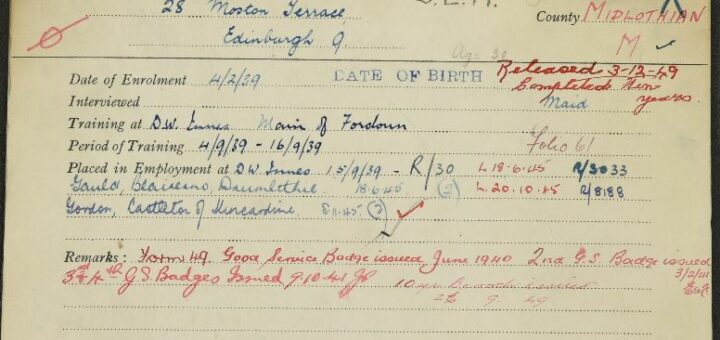 28 Moston Terrace,
County MIDLOTHIAN
Edinburgh 9.
M
Age 30
Date of Enrolment 4/2/39 DATE OF BIRTH Released 3-12-49
Completed Ten years
Interviewed Maid
Training at D.W. Innes Main of Fordoun
Period of Training 4/9/39 - 16/9/39 Folio 61
Placed in Employment at D.W Innes 15/9/39 - R/30 L.18.6.45 R/3033
Gauld, 18.6.45 (2) L.20.10.45 R/8188
Gordon, Castleton of Kincardine 5.11.45 (3)
Remarks: Form 49. Good Service Badge issued June 1940 2nd G.S. Badge issued
3/2/41
3rd & 4th G.S. Badges Issued 9-10-41
10 yr
9 49